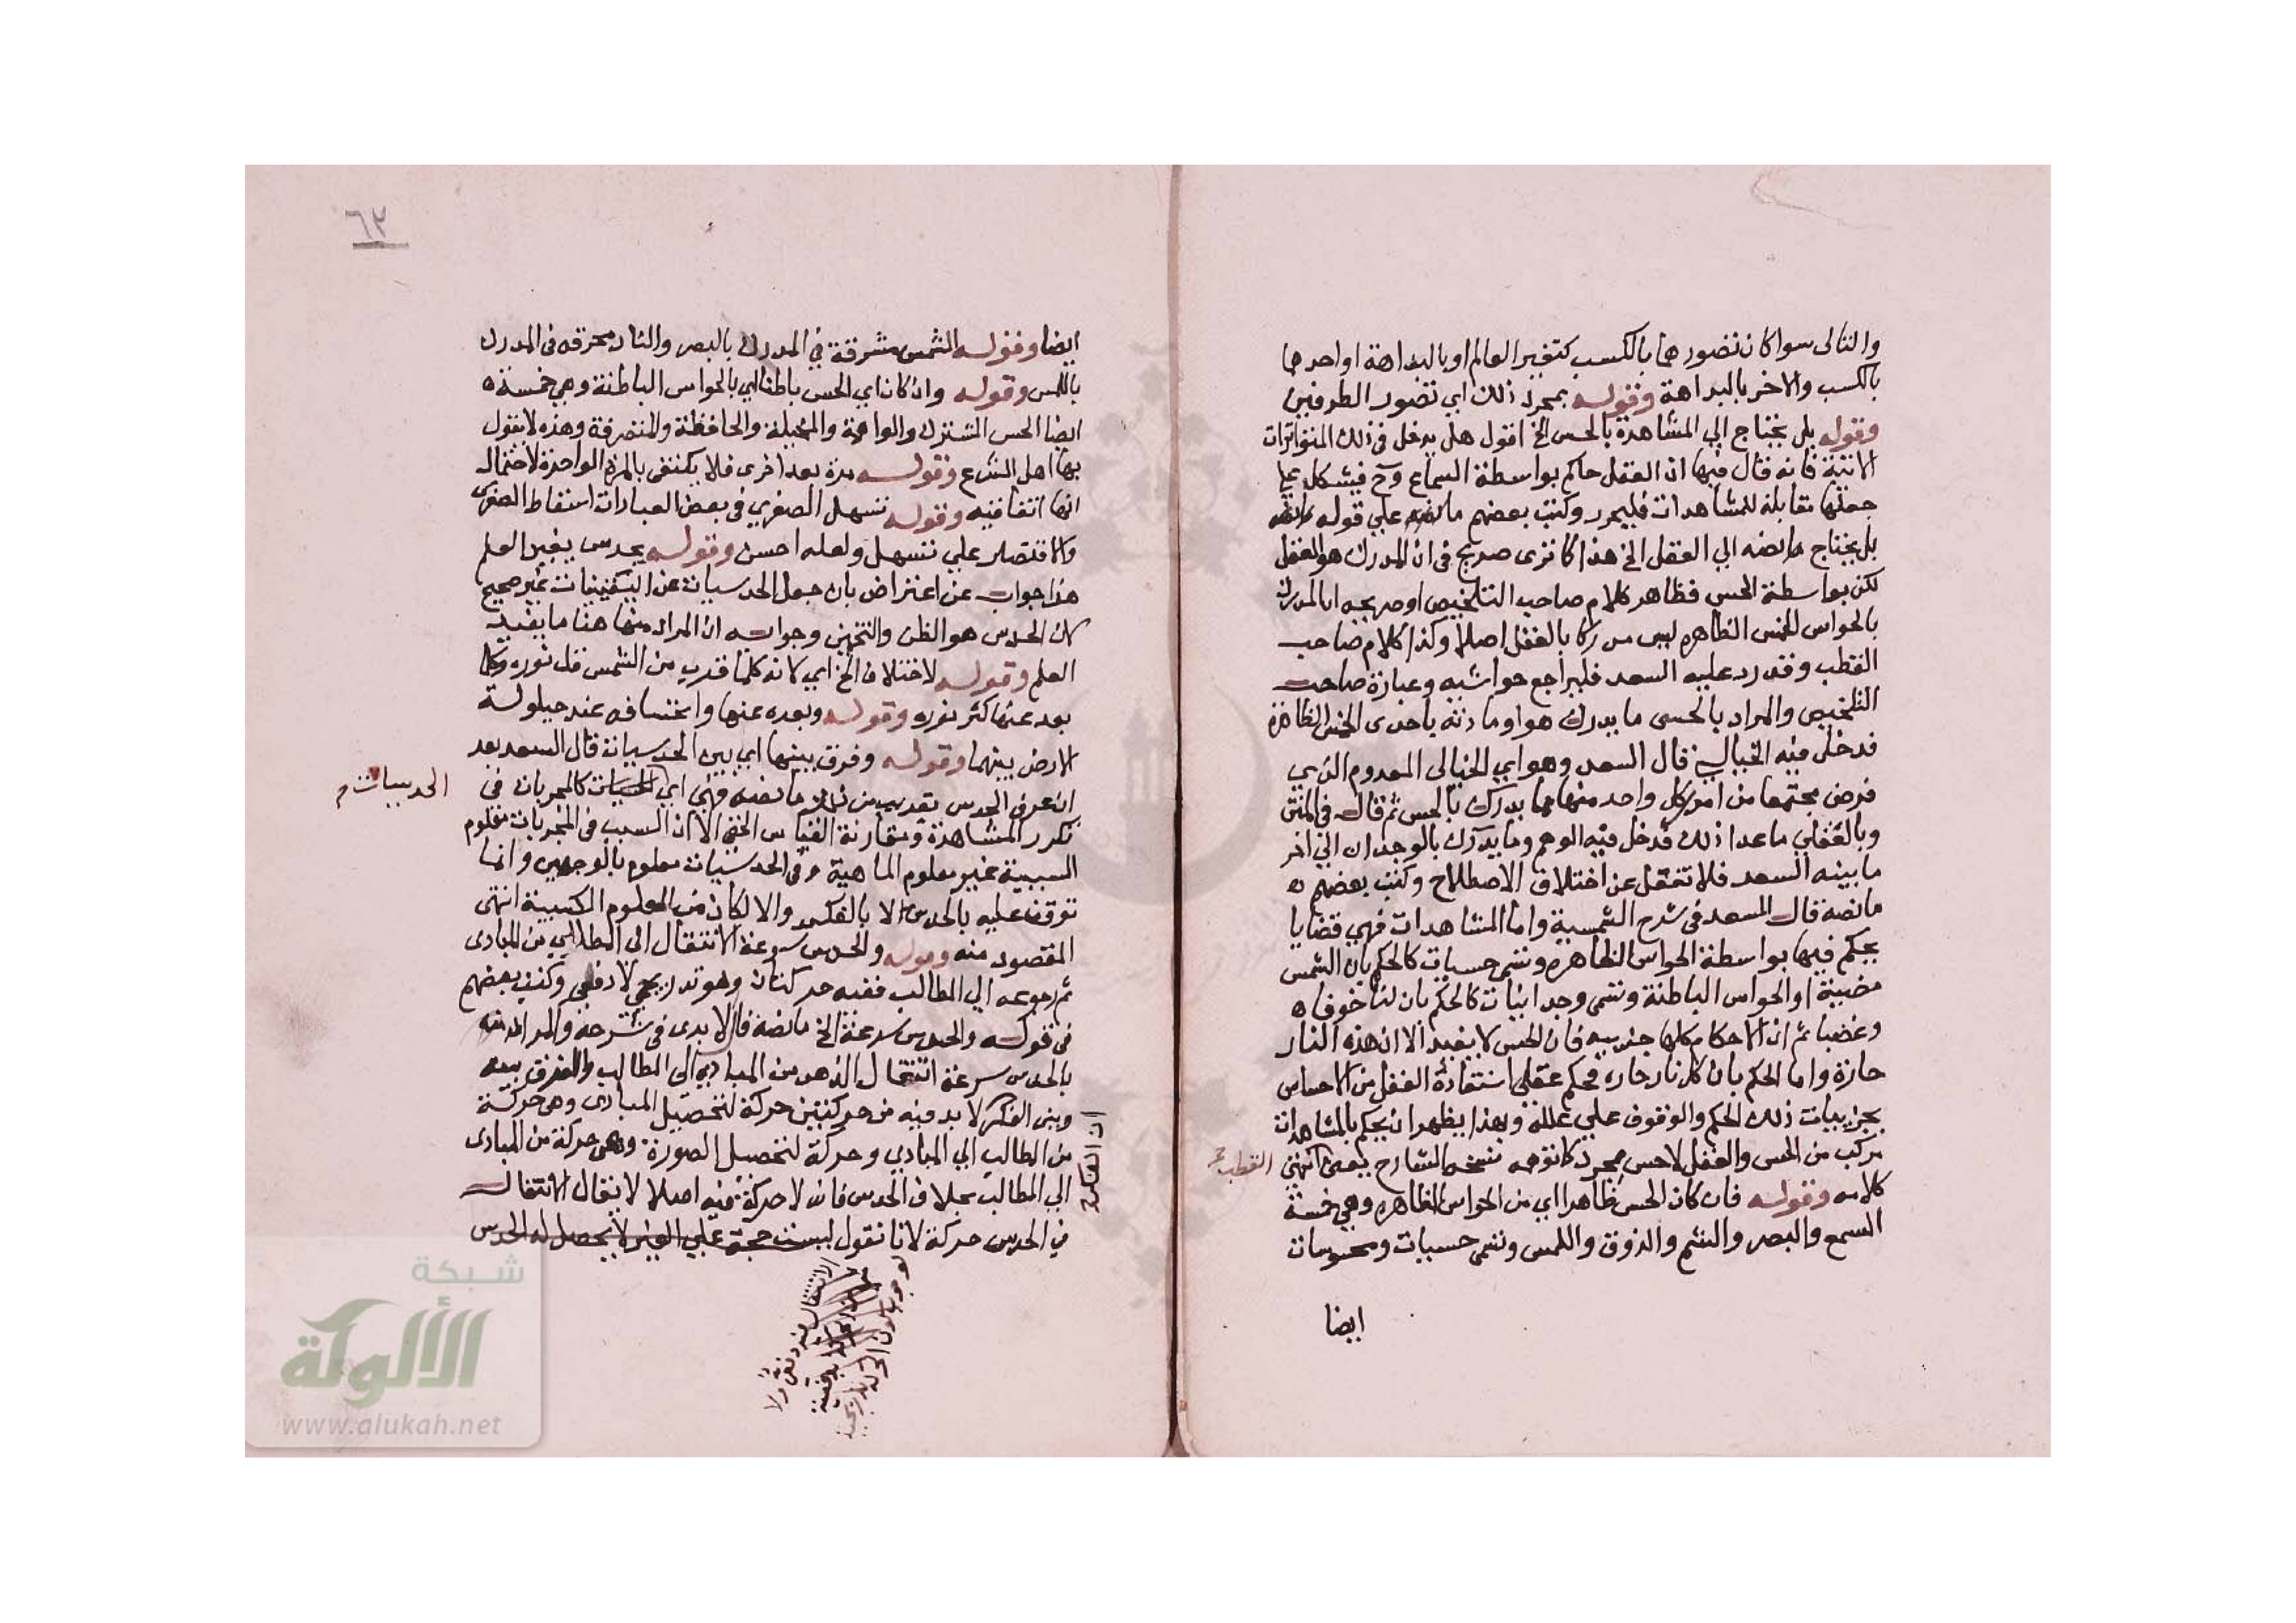 والتالى سواكان تصورهما بالكسب كتغير العالم او بالبداهة او احدهما
بالكسب والاخر بالبداهة وقوله بمجرد ذلك اي تصور الطرفين
وقوله بل يحتاج الي المشاهدة بالحس الخ اقول هل يدخل فى ذلك المتواترات
الاتية فانه قال فيها ان العقل حاكم بواسطة السماع وح فيشكل
جعلها مقابلة للمشاهدات فليحرر وكتب بعضهم ما نصه علي قوله
بل يحتاج ما نصه الي العقل الخ هذا كما ترى صريح فى ان المدرك هو العقل
لكن بواسطة الحس فظاهر كلام صاحب التلخيص او صريحه ان المدرك
بالحواس الخمس الظاهره ليس مدركا بالعقل اصلا وكذا كلام صاحب
القطب وقد رد عليه السعد فليراجع حواشيه وعبارة صاحب
التلخيص والمراد بالحسى ما يدرك هو او مادته باحدى الخمس الظاهرة
فدخل فيه الخيالي قال السعد وهو اي الخيالى المعدوم الذي
فرض مجتمعا من امور كل واحد منها مما يدرك بالحس ثم قال فى المتن
وبالعقلي ما عدا ذلك فدخل فيه الوهم وما يدرك بالوجدان الي اخر
ما بينه السعد فلا تغفل عن اختلاف الاصطلاح وكتب بعضهم
ما نصه قال السعد فى شرح الشمسية واما المشاهدات فهي قضايا
يحكم فيها بواسطة الحواس الظاهره وتسمى حسيات كالحكم بان الشمس
مضيئة او الحواس الباطنة وتسمى وجدانيات كالحكم بان لنا خوفا
وغضبا ثم ان الاحكام كلها جزييه فان الحس لا يفيد الا ان هذه النار
حارة واما الحكم بان كل نار حاره فحكم عقلي استفادة العقل من الاحساس
بجزييات ذلك الحكم والوقوف علي علله وبهذا يظهر ان يحكم بالمشاهدات
مركب من الحس والعقل لا حس مجرد كما توهمه الشارح يعني انتهى
القطب
كلامه وقوله فان كان الحس ظاهرا اي من الحواس الظاهره وهي خمسة
السمع والبصر والشم والذوق واللمس وتسمى حسيات ومحسوسات
ايضا
٦٢
ايضا وقوله الشمس مشرقة فى المدرك بالبصر والنار محرقه فى المدرك
باللمس وقوله وان كان اي الحس باطنا اي بالحواس الباطنة وهي خمسة
ايضا الحس المشترك والواهمة والمخيلة والحافظة والمتصرفة وهذه لا تقول
بها اهل الشرع وقوله مرة بعد اخرى فلا يكتفى بالمرة الواحدة لاحتمال
انها اتفاقيه وقوله تسهل الصفري فى بعض العبارات اسقاط الصفرى
والاقتصار علي تسهل ولعله احسن وقوله بحدس يفيد العلم
هذا جواب عن اعتراض بان جعل الحدسيات من اليقينيات غير صحيح
لان الحدس هو الظن والتخمين وجوابه ان المراد منها هنا ما يفيد
العلم وقوله لاختلاف الخ اي لانه كلما قرب من الشمس قل نوره وكلما
بعد عنها كثر نوره وقوله وبعده عنها وانخسافه عند حيلولة
الارض بينهما وقوله وفرق بينها اي بين الحدسيات قال السعد بعد
ان عرف الحدس بقريب من ما نصه فهي اي كالمجربات فى
الحدسيات
تكرر المشاهدة ومقارنة القياس الخفى الا ان السبب فى المجربات معلوم
السببية غير معلوم الماهية وفى الحدسيات معلوم بالوجهين وانما
توقف عليه بالحدس لا بالفكر والا لكان من العلوم الكسبية انتهى
المقصود منه وقوله والحدس سرعة الانتقال الى المطالب من المبادى
ثم رجوعه الي المطالب ففيه حركتان وهو تدريجي لا دفعي وكتب بعضهم
فى قوله والحدس سرعة الخ ما نصه قال الابدى فى شرحه والمراد
بالحدس سرعة انتقال الذهن من المبادي الى المطالب والفرق بينه
وبين الفكر لا بد فيه من حركتين حركة لتحصيل المبادى وهى حركة
ان الفكر
من المطالب الي المبادي وحركة لتحصيل الصورة وهى حركة من المبادى
الي المطالب بخلاف الحدس فانه لا حركة فيه اصلا لا يقال الانتقال
في الحدس حركة لانا نقول ليست حجة علي الغير لا يحصل له الحدس
الانتقال فيه دفعى ولا
لوجوب كون الحركة تدريجية
شبكة
الألوكة
www.alukah.net